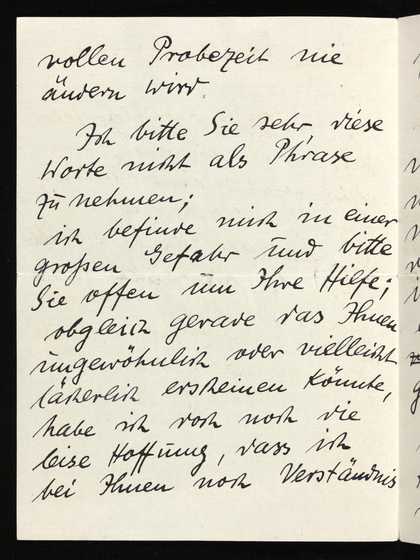 vollen Probezeit nie
ändern wird.
Ich bitte Sie sehr diese
Worte nicht als Phrase
zu nehmen;
ich befinde mich in einer
großen Gefahr und bitte
Sie offen um Ihre Hilfe;
obgleich gerade das Ihnen
ungewöhnlich oder vielleicht
lächerlich erscheinen könnte,
habe ich doch noch die
leise Hoffnung, dass ich
bei Ihnen noch Verständnis